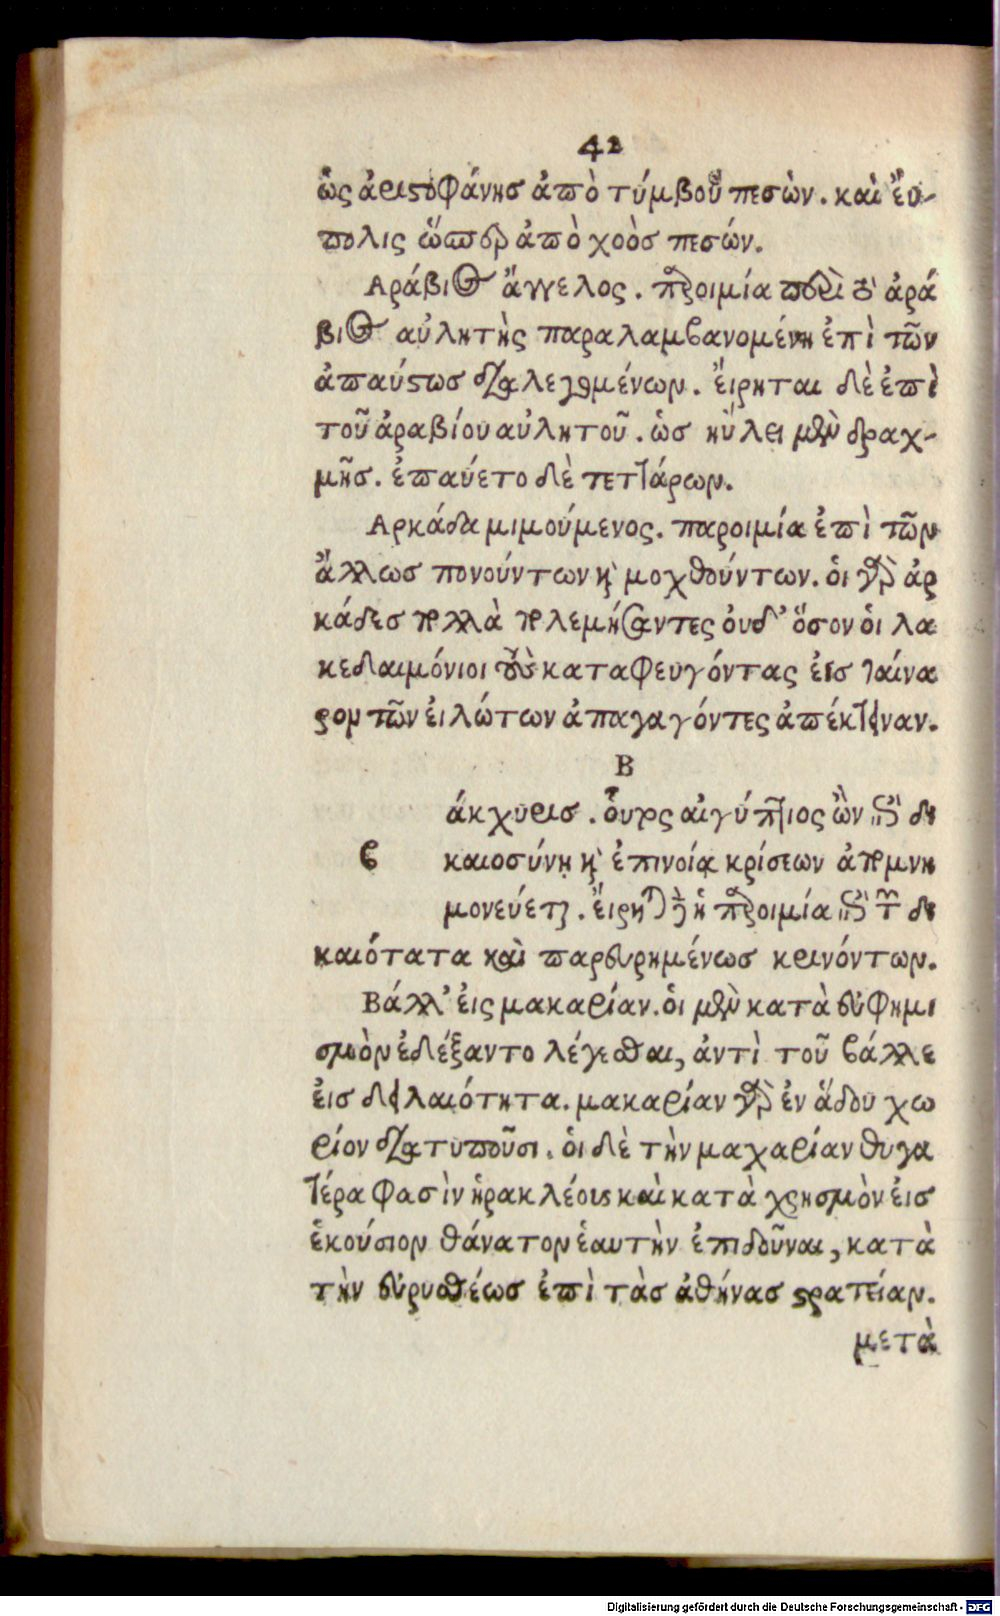 42
ὡς ἀριστοφάνησ ἀπὸ τύμβου πεσὼν. καὶ ἔυ-
πολις ὥσπερ ἀπὸ χοὸσ πεσών.
Αράβιος ἄγγελος. παροιμία παρὰ τὸ ἀρά
βιος αὐλητὴς παραλαμβανομένη ἐπὶ τῶν
ἀπαύστωσ διαλεγομένων. ἔιρηται δὲ ἐπὶ
τοῦ ἀραβίου αὐλητοῦ. ὡσ ηὔλει μὲν δραχ-
μῆσ. ἐπαύετο δὲ τεττάρων.
Αρκάδα μιμούμενος. παροιμία ἐπὶ τῶν
ἄλλωσ πονούντων καὶ μοχθούντων. ὁι γὰρ ἀρ
κάδεσ πολλὰ πολεμήσαντες ὀυδ’ ὅσον ὁι λα
κεδαιμόνιοι τοὺς καταφευγόντας ἐισ ταίνα
ρον τῶν ἐιλώτων ἀπαγαγόντες ἀπέκτειναν.
Β
άκχυρισ. ὁυτος αἰγύπτιος ὢν ἐπὶ δι
β καιοσύνῃ καὶ ἐπινοίᾳ κρίσεων ἀπομνη
μονεύεται. ἔιρηται οὖν ἡ παροιμία ἐπὶ τῶν δι
καιότατα καὶ παρευρημένωσ κρινόντων.
Βάλλ’ ἐις μακαρίαν. ὁι μὲν κατὰ εὐφημι
σμὸν ἐδέξαντο λέγεσθαι, ἀντὶ τοῦ βάλλε
ἐισ δειλαιότητα. μακαρίαν γὰρ ἐν ἅδου χω
ρίον διατυποῦσι. ὁι δὲ τὴν μαχαρίαν θυγα
τέρα φασὶν ἡρακλέους καὶ κατὰ χρησμὸν ἐισ
ἑκούσιον θάνατον ἑαυτὴν ἐπιδοῦναι, κατὰ
τὴν εὐρυσθέωσ ἐπὶ τὰσ ἀθήνασ στρατείαν.
μετὰ
Digitalisierung gefördert durch die Deutsche Forschungsgemeinschaft - DFG